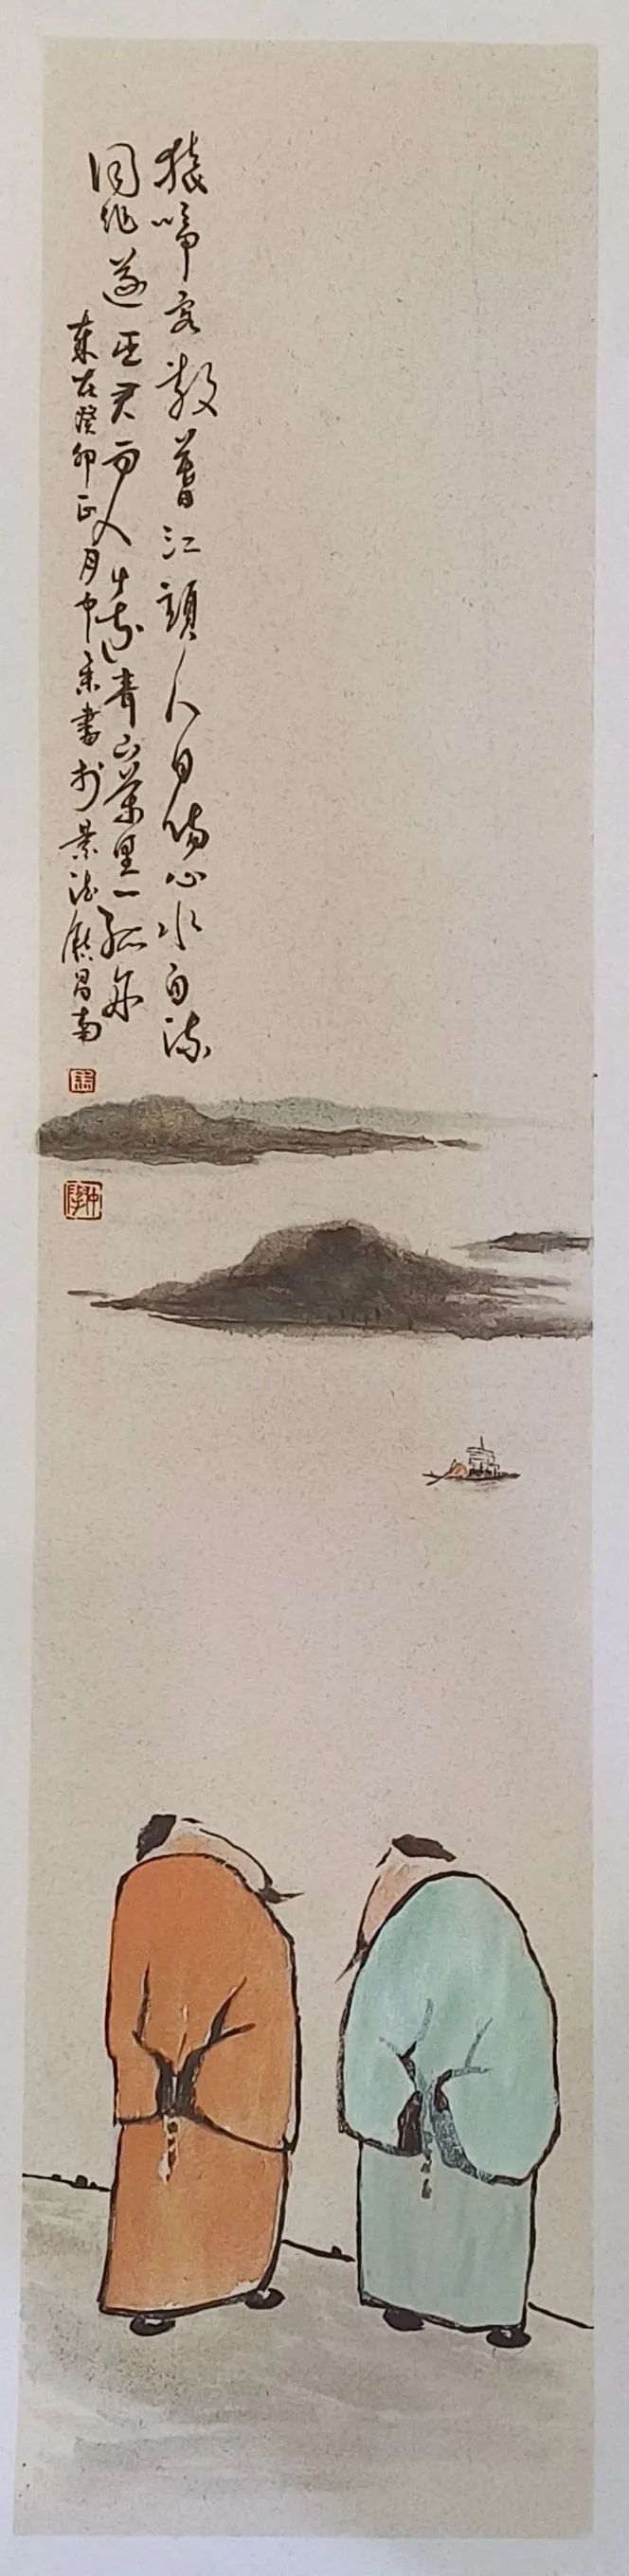 猿啼客散暮江頭人自傷心水自流
同作逐臣君更遠青山萬里一孤舟
在癸卯正月中書於景德鎮昌南